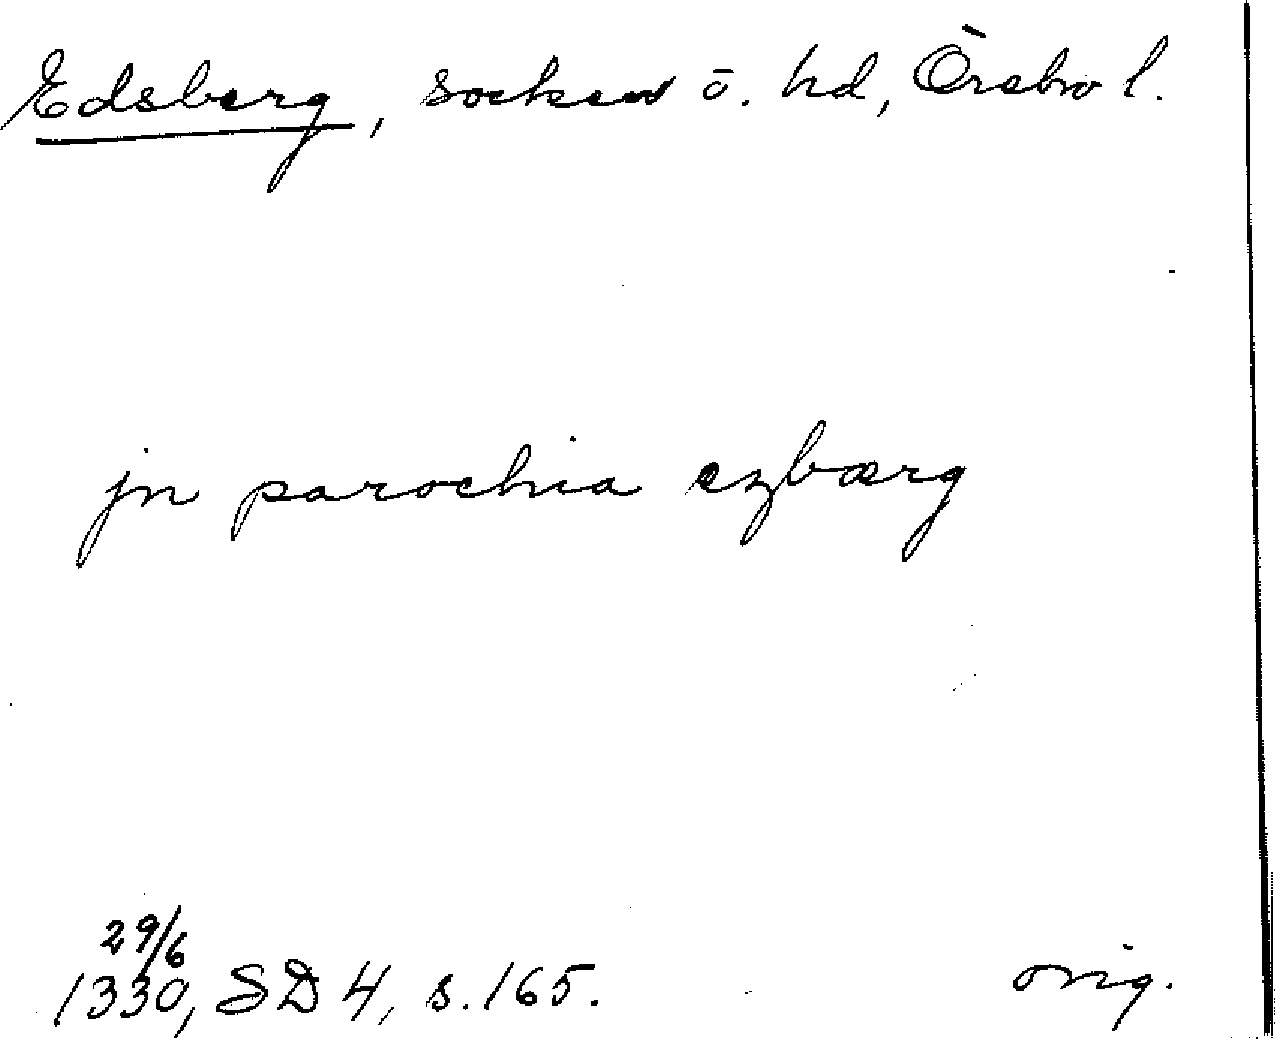 Edsberg, socken ö. hd, Örebro l.
jn parochia ezbærg
29/6
1330, SD 4, s. 165.
orig.